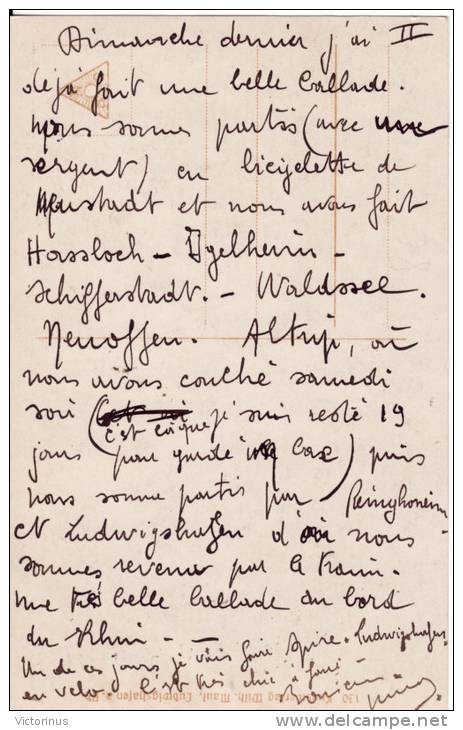 Dimanche dernier j'ai II
déjà fait une belle ballade.
nous sommes partis (avec une
sergent) en bicyclette de
Neustadt et nous avons fait
Hassloch - Igelheim -
Schifferstadt. - Waldsee.
Neuoffen. Altrip, où
nous avons couché samedi
soir (c'est ici que je suis resté 19
jours pour garde) puis
nous somme partis par Reinghoneim
et Ludwigshafen d'où nous
sommes revenus par le train.
une très belle ballade au bord
du Rhin - -
Un de ces jours je vais faire Spire - Ludwigshafen
en velo. C'est très chic à faire -
Victorinus
www.delcampe.net